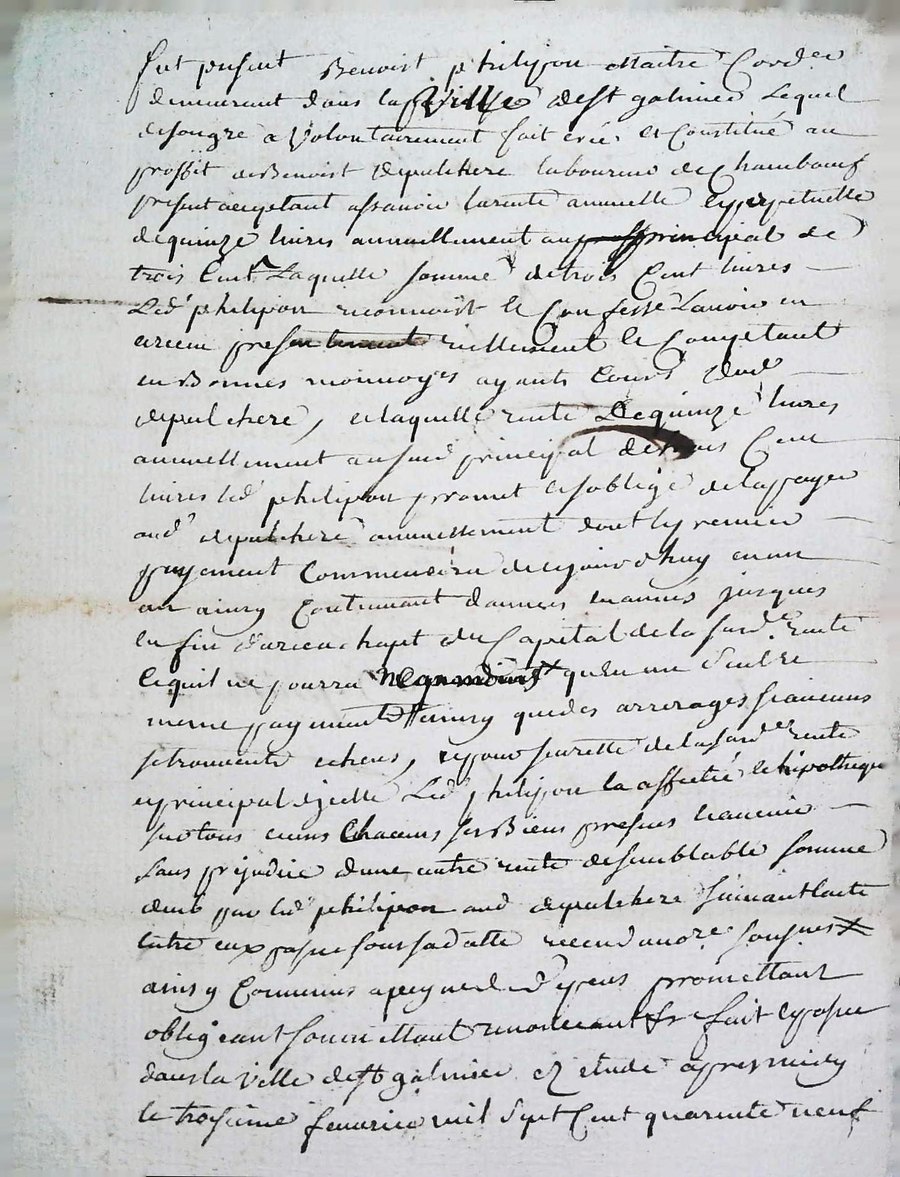 fut present Benoist philipon Maitre Cordier
demeurant dans la ville de St galmier Lequel
de son gre a Volontairement fait cree et Constitué au
proffit de Benoist depulchere laboureur de Chamboeuf
present acceptant assavoir la rente annuelle et perpetuelle
de quinze livres annuellement au principal de
trois Cent Laquelle somme de trois Cent livres
Led philipon reconnoist et Confesse Lavoir eu
et receu presentement reellement et Comptant
en Bonnes monnoyes ayants Cours dud
depulchere, et laquelle rente De quinze livres
annuellement au sud principal de trois Cent
livres led philipon promet et soblige de la payer
aud depulchere annuellement dont le premier
payement Commencera de ce jourdhuy en un
an ainsy Continuant dannées en années jusques
en fin dareachapt du Capital de la sud rente
lequil ne pourra Neanmoins quen un seul et
meme payement ainsy que des arrerages si aucuns
se trouvent echeus, et pour seurette de la sud rente
et principal dicelle Led philipon la affectée et hipotheque
sur tous et uns Chacuns ses Biens presens et avenir
Sans prejudice dune autre rente de semblable somme
deub par led philipon aud depulchere suivant lacte
entre eux passé sous sa datte
ainsy Convenus a peyne de d'epens promettant
obligeant soumettant renonceant &c fait et passé
dans la Ville de St galmier ez etude apres midy
le troisieme fevrier mil sept Cent quarente neuf